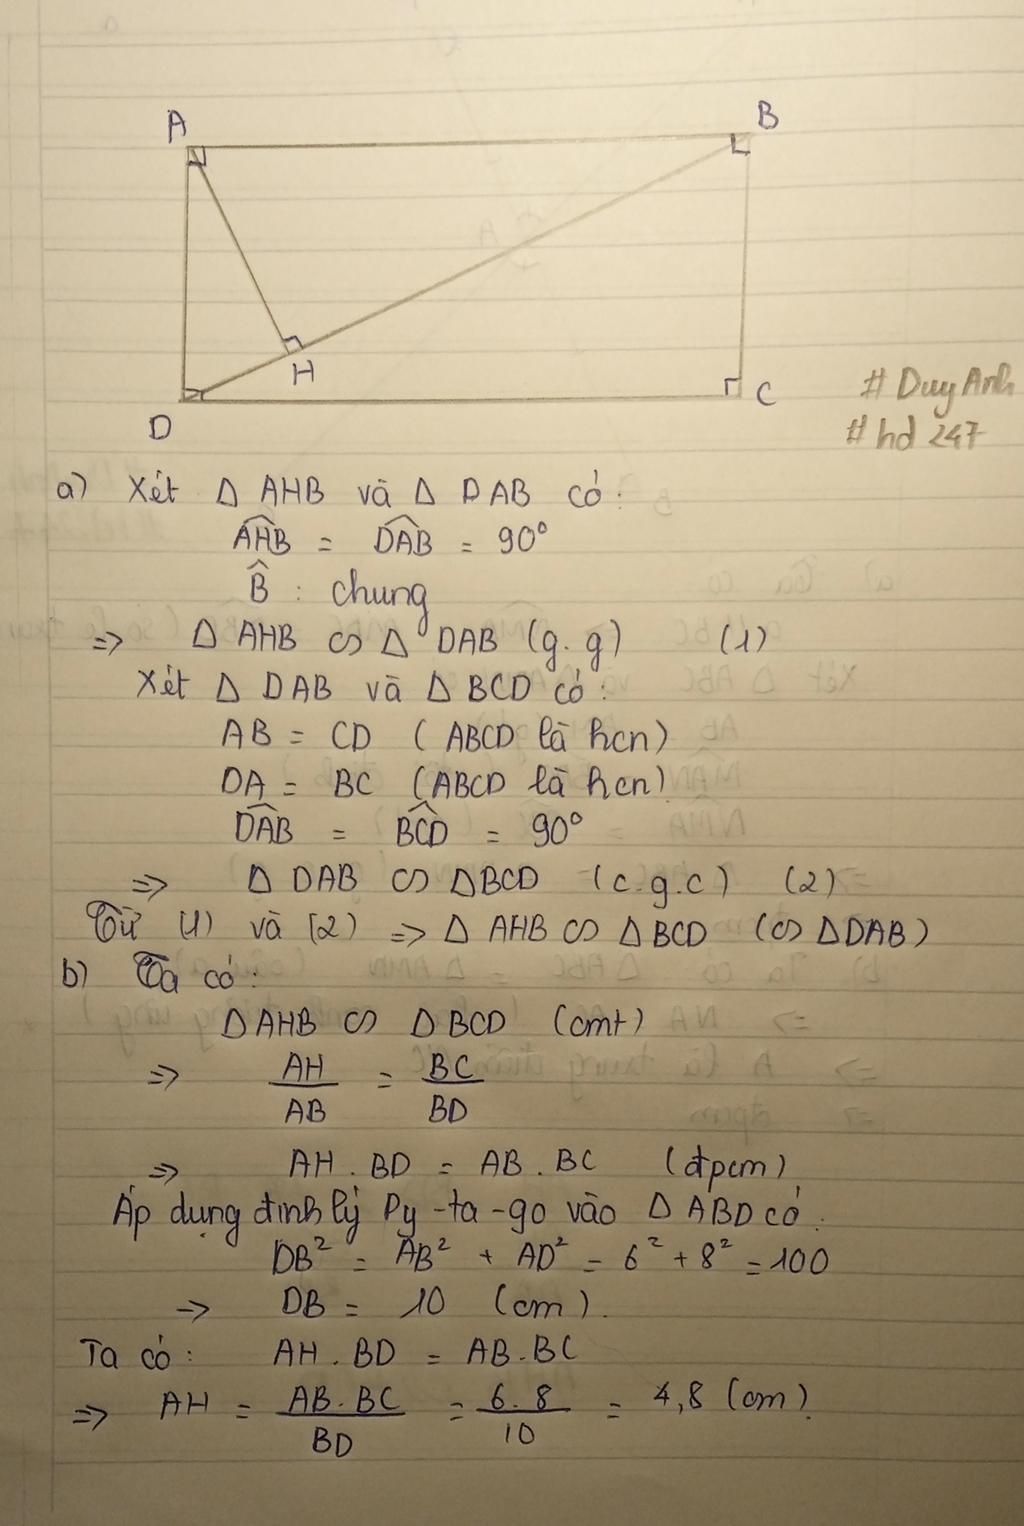 A
B
H
C
D
# Duy Anh
# hd 247
a) Xét Δ AHB và Δ DAB có:
AHB = DAB = 90°
B̂ : chung
=> Δ AHB ∽ Δ DAB (g.g) (1)
Xét Δ DAB và Δ BCD có:
AB = CD (ABCD là hcn)
DA = BC (ABCD là hcn)
DAB = BCD = 90°
=> Δ DAB ∽ ΔBCD (c.g.c) (2)
Từ (1) và (2) => Δ AHB ∽ Δ BCD (∽ ΔDAB)
b) Ta có:
Δ AHB ∽ Δ BCD (cmt)
=> AH/AB = BC/BD
=> AH . BD = AB . BC (đpcm)
Áp dụng định lý Py-ta-go vào Δ ABD có:
DB² = AB² + AD² = 6² + 8² = 100
=> DB = 10 (cm).
Ta có: AH . BD = AB . BC
=> AH = AB . BC/BD = 6 . 8/10 = 4,8 (cm).